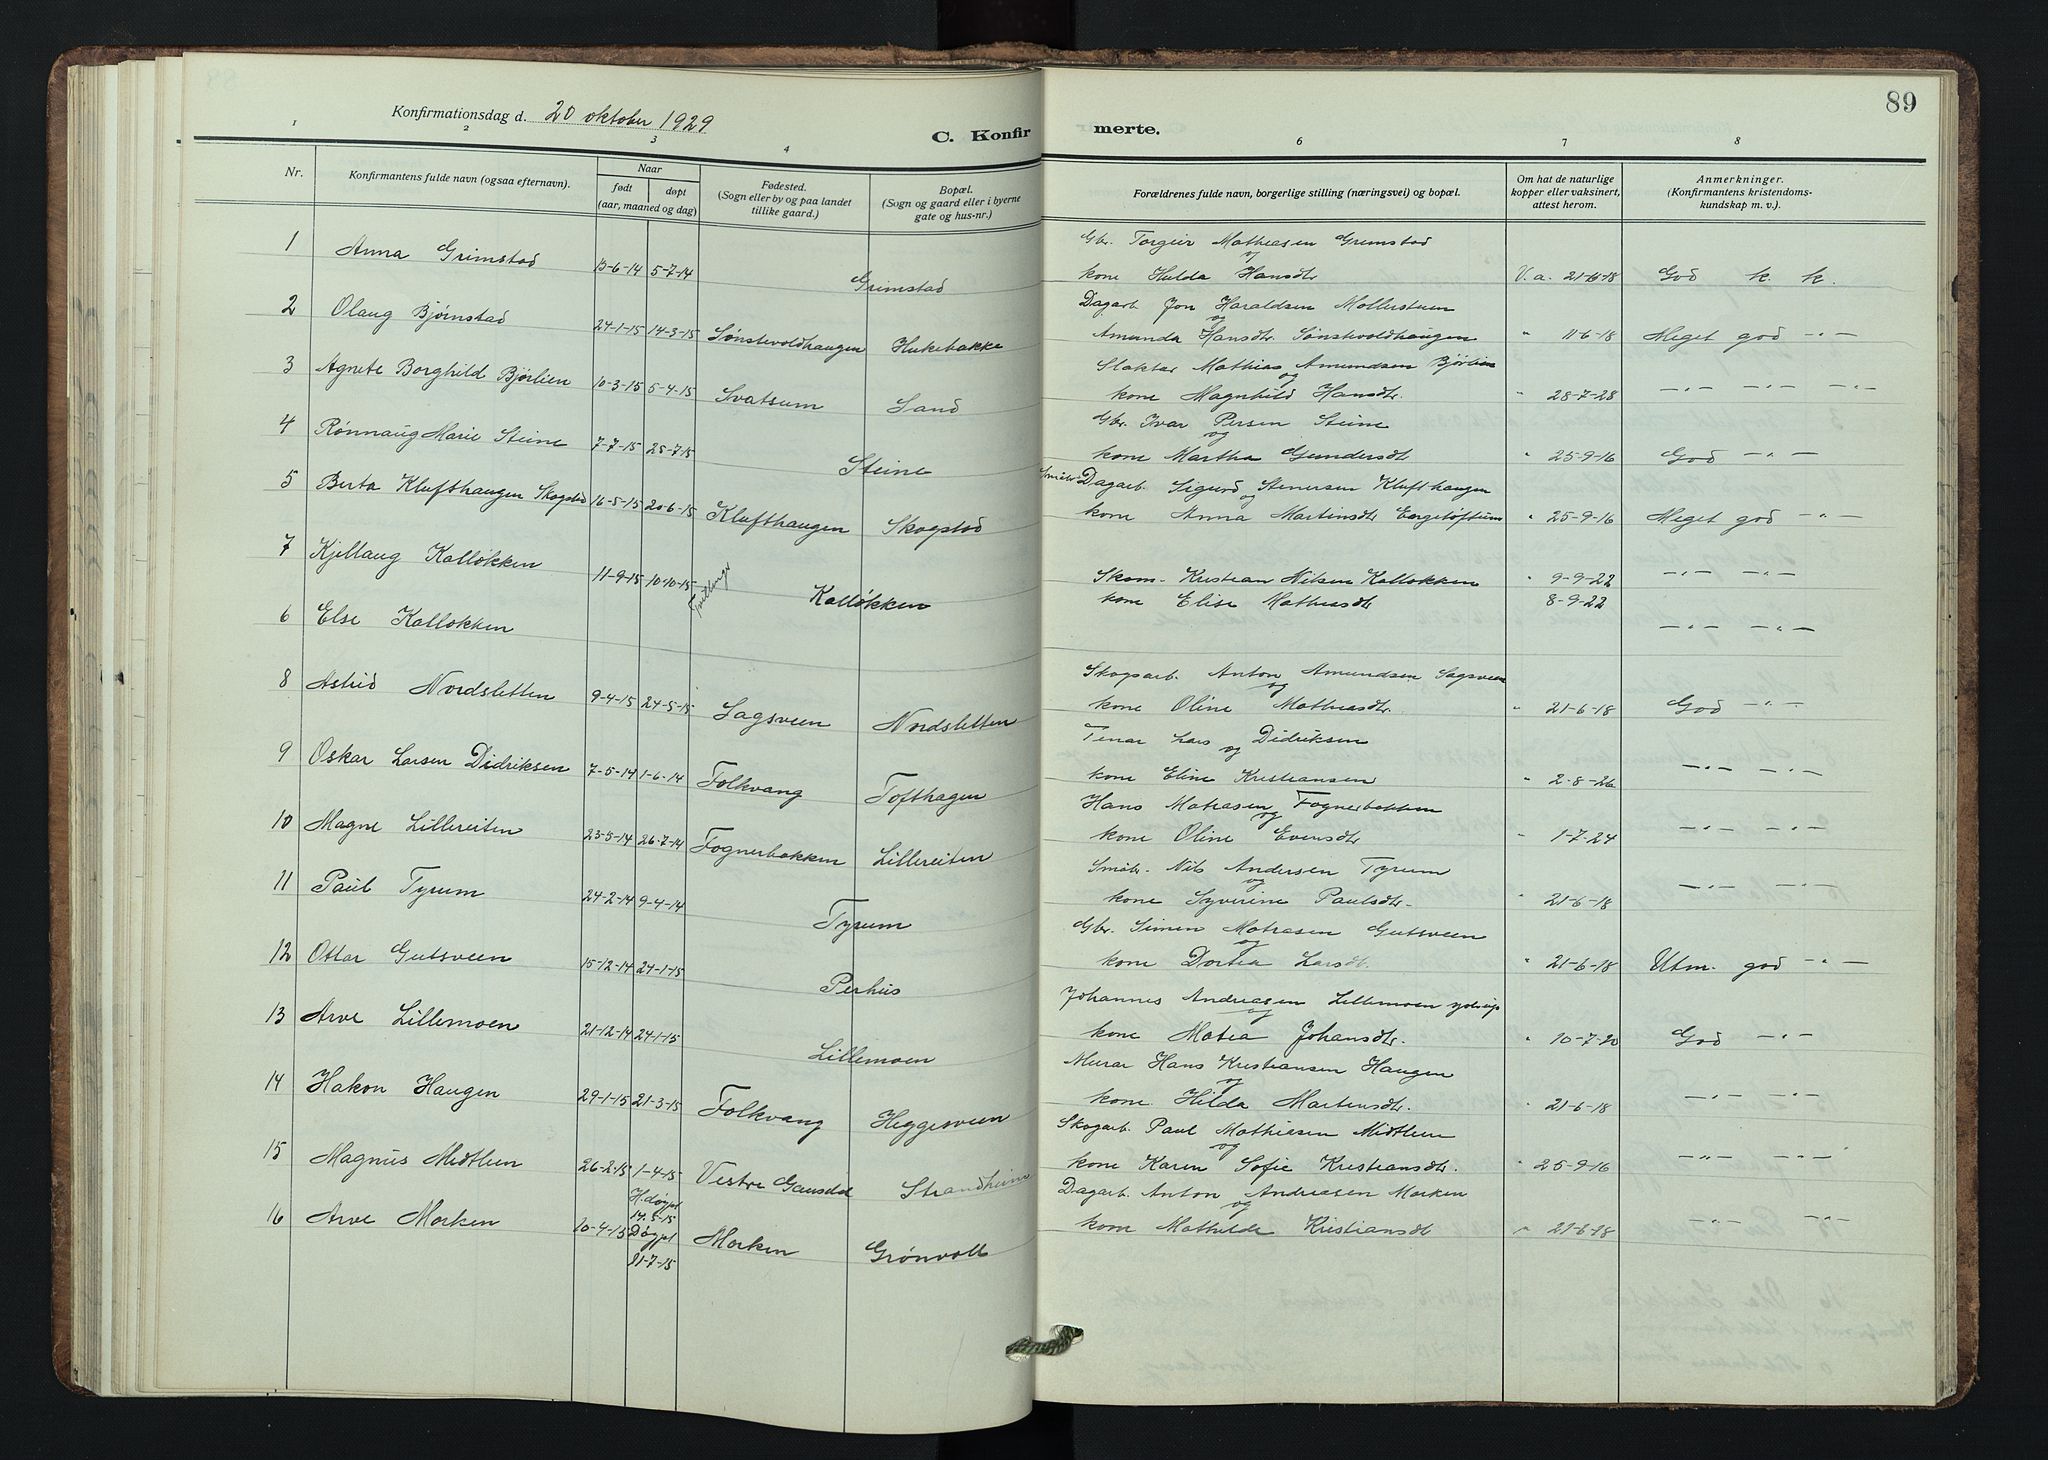 89
Konfirmationsdag d. 20 oktober 1929
C. Konfirmerte.
1 2 3 4 6 7 8
Nr. Konfirmantens fulde navn (ogsaa efternavn). Naar født døpt (aar, maaned og dag) Fødested. (Sogn eller by og paa landet tillike gaard.) Bopæl. (Sogn og gaard eller i byerne gate og hus-nr.) Forældrenes fulde navn, borgerlige stilling (næringsvei) og bopæl. Om hat de naturlige kopper eller vaksinert, attest herom. Anmerkninger. (Konfirmantens kristendomskundskap m. v.).
1 Anna Grimstad 13-6-14 5-7-14 Grimstad Gbr. Torgeir Mathiasen Grimstad
og
kone Hulda Hansdtr V. a. 21-6-18 God k. k.
2 Olaug Bjørnstad 24-1-15 14-3-15 Sønstevoldhaugen Hukebakke Dagarb. Jon Haraldsen Mollerstuen
og
Amunda Hansdtr. Sønstevoldhaugen " 11-6-18 Meget god -"-
3 Agnete Borghild Bjørlien 10-3-15 5-4-15 Svatsum Sand Slakter Mathias Amundsen Bjørlien
og
kone Magnhild Hansdtr. " 28-7-28 -"- -"- -"-
4 Rønnaug Marie Steine 7-7-15 25-7-15 Steine Gbr. Ivar Persen Steine
og
kone Martha Gundersdtr " 25-9-16 God -"-
5 Berta Klufthaugen Skogstad 16-5-15 20-6-15 Klufthaugen Skogstad Småbr. Dagarb. Sigurd Stenersen Klufthaugen
og
kone Anna Martinsdtr " 25-9-16 Meget god -"-
7 Kjellaug Kalløkken 11-9-15 10-10-15 Tvillinger Kalløkken Skom. Kristian Nilsen Kalløkken " 9-9-22 -"- -"-
kone Elise Mathiasdtr 8-9-22
6 Else Kalløkken -"- -"-
8 Astrid Nordsletten 9-4-15 24-5-15 Sagsveen Nordsletten Skogsarb. Anton Amundsen Sagsveen
og
kone Oline Mathiasdtr. " 21-6-18 God -"-
9 Oskar Larsen Didriksen 7-5-14 1-6-14 Folkvang Tofthagen Lars Didriksen
og
kone Eline Kristiansen " 2-8-26 -"- -"-
10 Magne Lillereiten 23-5-14 26-7-14 Fognerbakken Lillereiten Hans Matiasen Fognerbakken
og
kone Oline Evensdtr " 1-7-24 -"- -"-
11 Paul Tyrum 24-2-14 9-4-14 Tyrum Småbr. Nils Andersen Tyrum
og
kone Syverine Paulsdtr. " 21-6-18 -"- -"-
12 Ottar Gutsveen 15-12-14 24-1-15 Perhus Gbr. Simen Matiasen Gutsveen
og
kone Dortea Larsdt. " 21-6-18 Utm. god -"-
13 Arve Lillemoen 21-12-14 24-1-15 Lillemoen Johannes Andreasen Lillemoen
og
kone Matea Johansdtr. " 10-7-20 God -"-
14 Håkon Haugen 29-1-15 21-3-15 Folkvang Heggesveen Murar Hans Kristiansen Haugen
og
kone Hilda Martinsdtr. " 21-6-18 -"- -"-
15 Magnus Midtlien 26-2-15 1-4-15 Vestre Gausdal Strandheim Skogarb. Paul Mathiasen Midtlien
og
kone Karen Sofie Kristiansdtr. " 25-9-16 -"- -"-
16 Arve Morken 10-4-15 H.døpt 14-5-15 Døpt 11-7-15 Morken Grønvoll Dagarb. Anton Andreasen Morken
og
kone Mathilde Kristiansdtr " 21-6-18 -"- -"-